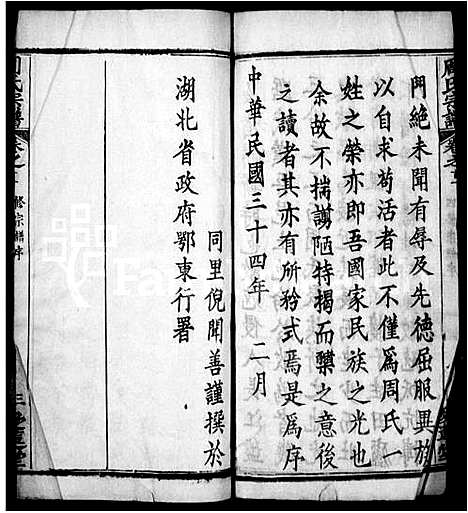 周氏宗譜
卷之三
門絶未聞有辱及先德屈服異族
以自求茍活者此不僅爲周氏一
姓之榮亦即吾國家民族之光也
余故不揣謭陋特揭而櫫之意後
之讀者其亦有所矜式焉是爲序
中華民國三十四年 二月
同里倪聞善謹撰於
湖北省政府鄂東行署
周氏宗譜
卷之三
修宗譜序
三